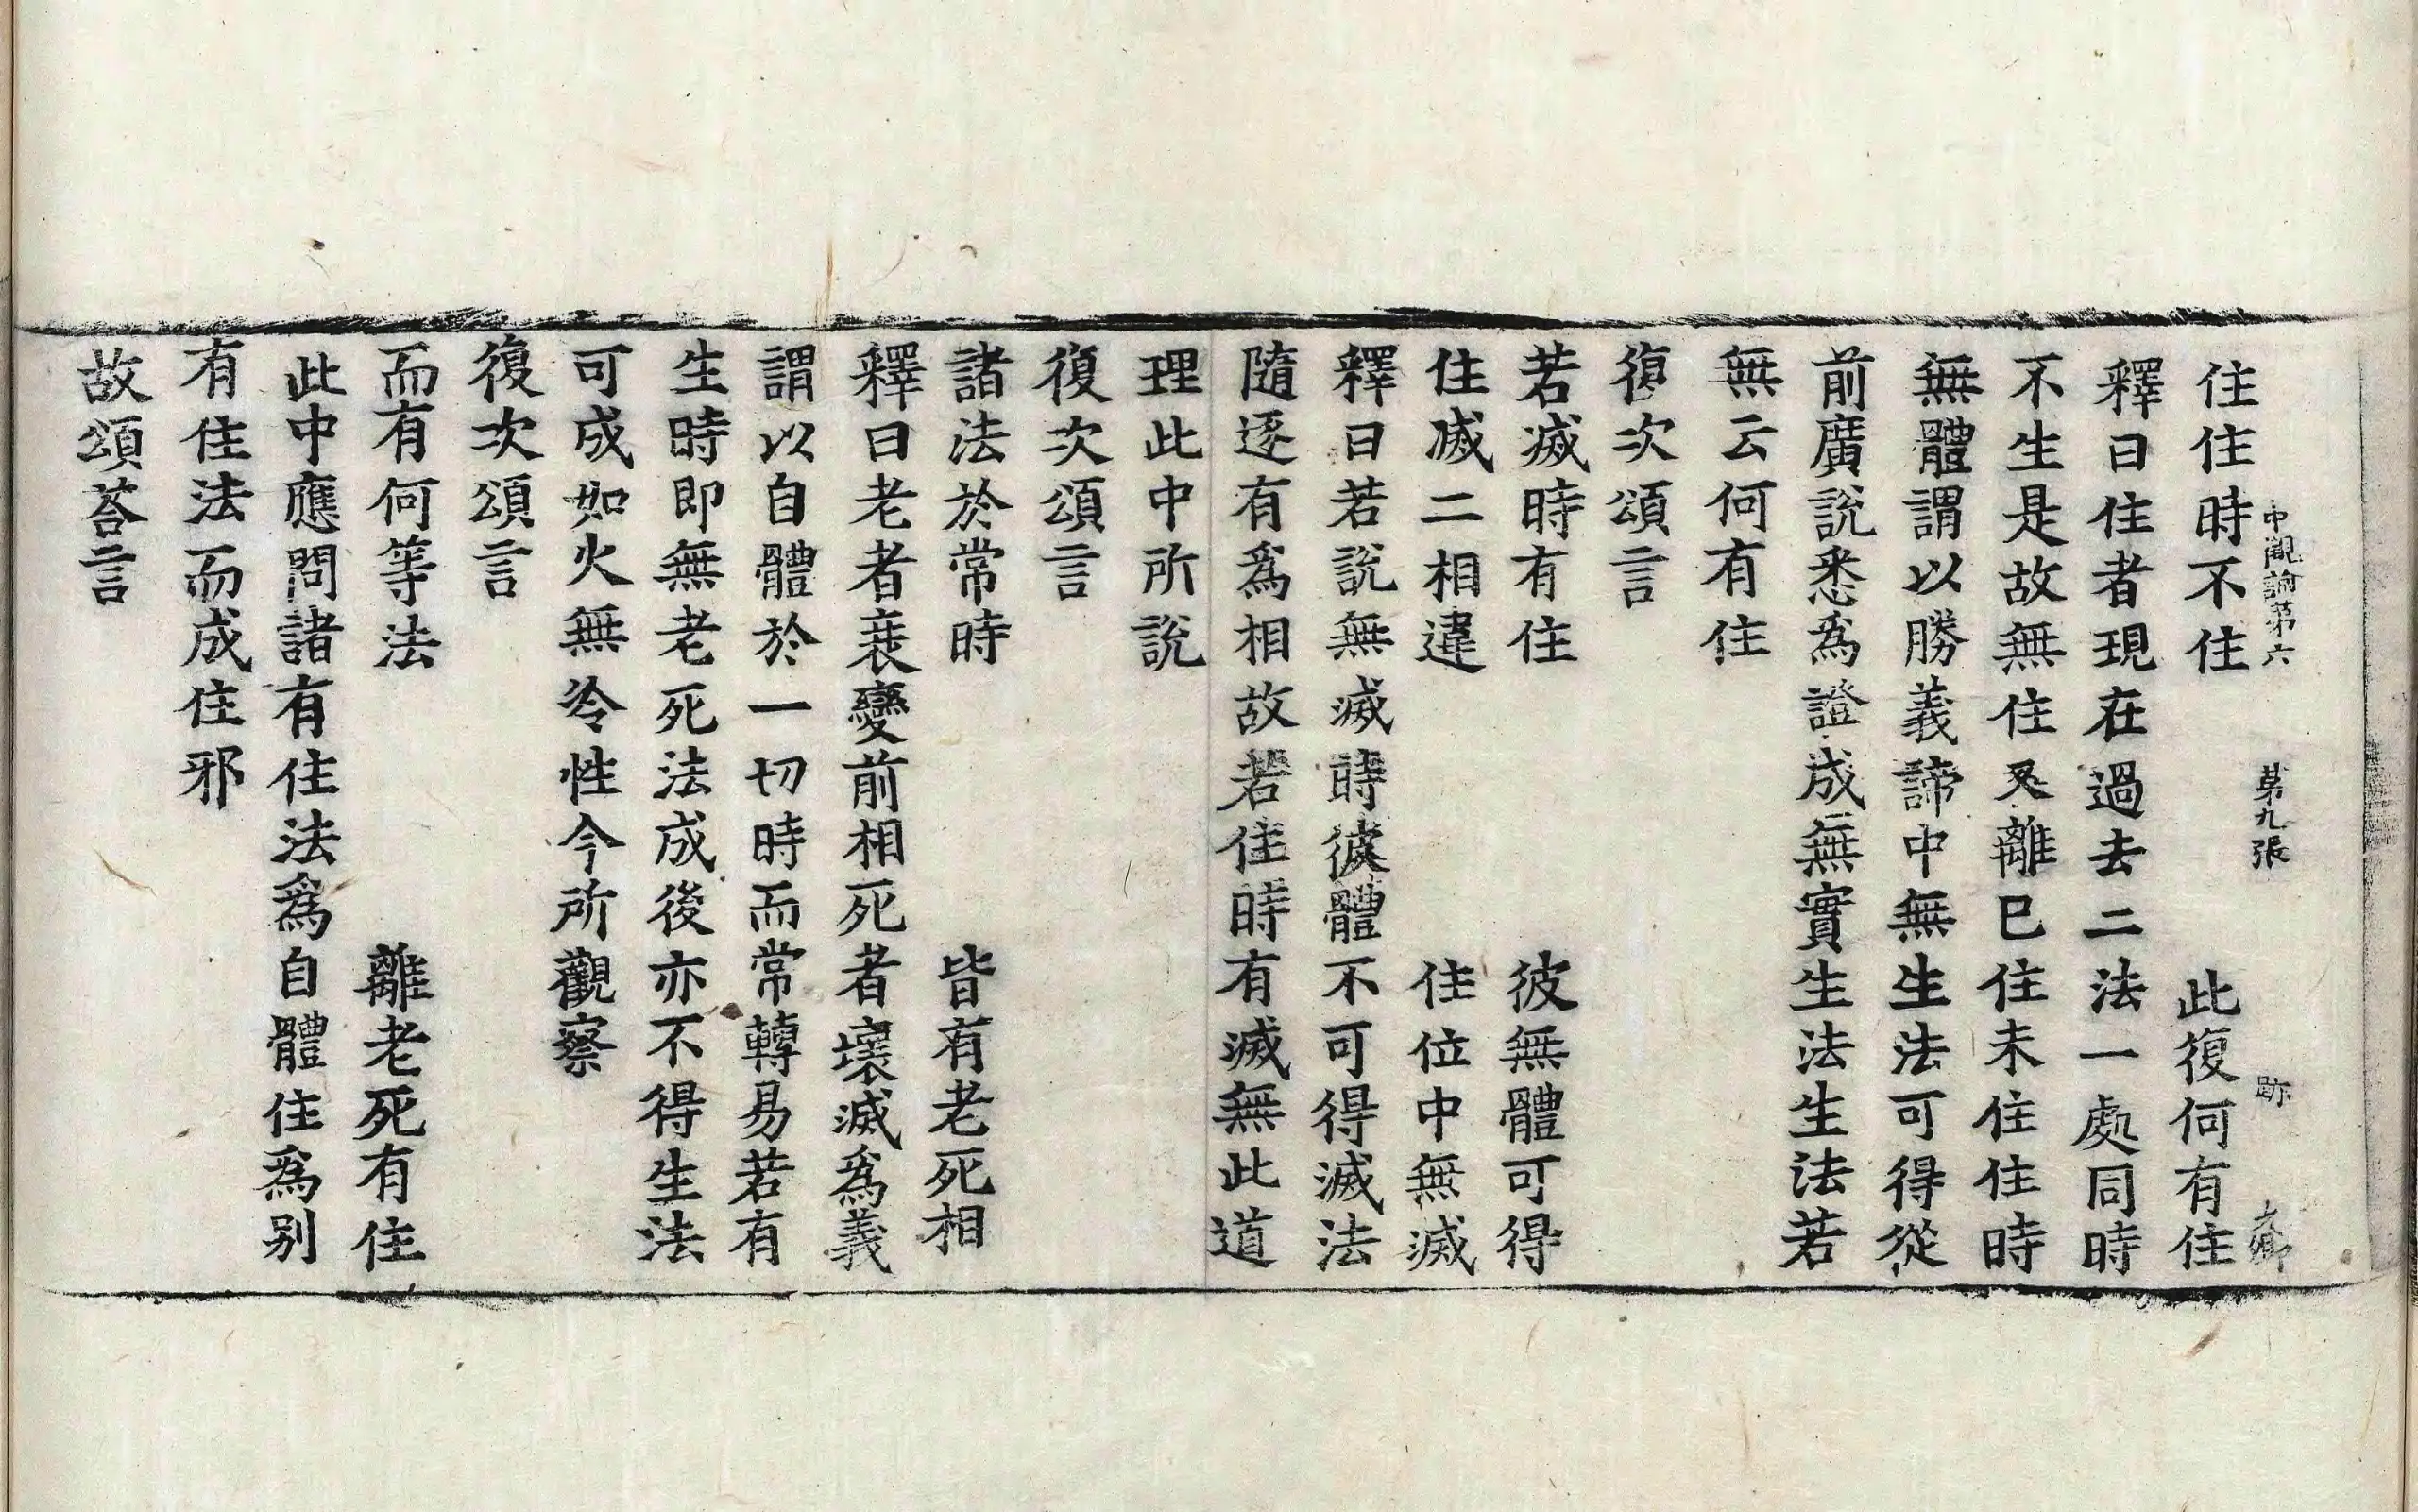 中觀論第六 第九張 跡
住住時不住 此復何有住
釋曰住者現在過去二法一處同時
不生是故無住又離已住未住住時
無體謂以勝義諦中無生法可得從
前廣說悉爲證成無實生法生法若
無云何有住
復次頌言
若滅時有住 彼無體可得
住滅二相違 住位中無滅
釋曰若說無滅時彼體不可得滅法
隨逐有爲相故若住時有滅無此道
理此中所說
復次頌言
諸法於常時 皆有老死相
釋曰老者衰變前相死者壞滅爲義
謂以自體於一切時而常轉易若有
生時即無老死法成後亦不得生法
可成如火無冷性今所觀察
復次頌言
而有何等法 離老死有住
此中應問諸有住法爲自體住爲別
有住法而成住邪
故頌荅言